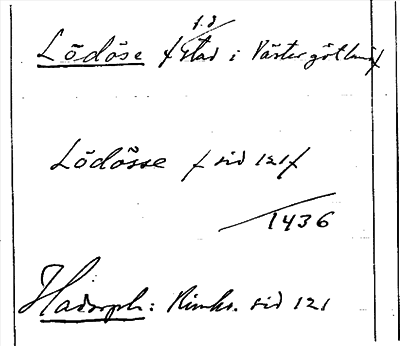 f.d.
Lödöse / stad i Västergötland /
Lödösse / sid 121 /
1436
Hadorph: Rimkr. sid 121